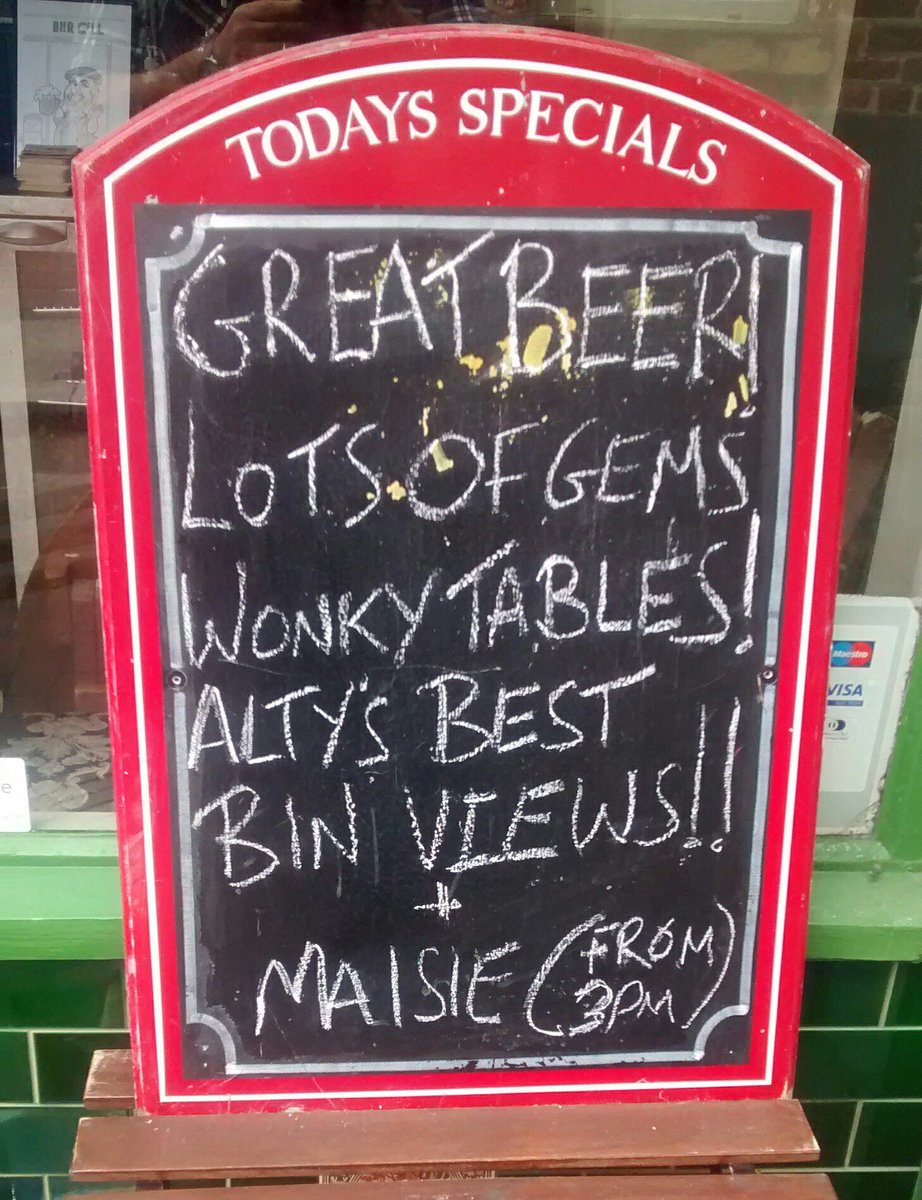 BAR CALL
TODAYS SPECIALS
GREAT BEER!
LOTS OF GEMS
WONKY TABLES!
ALTY'S BEST
BIN VIEWS!!
+
MAISIE (FROM
3PM)
Maestro
VISA